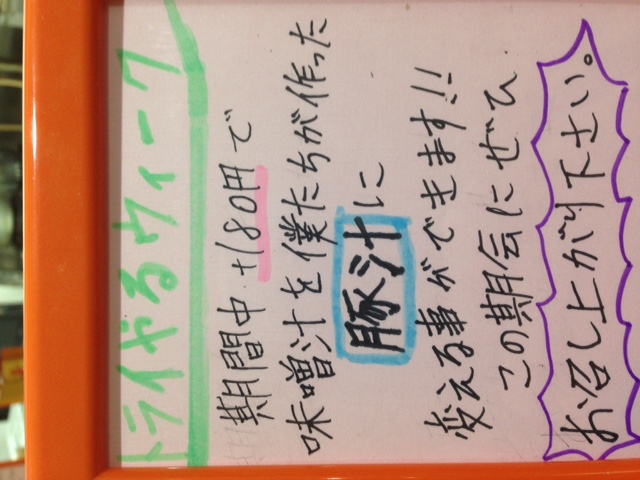 トライやるウィーク
期間中 +180円で
味噌汁を僕たちが作った
豚汁に
変える事ができます!!
この期会にぜひ
お召し上がり下さい。